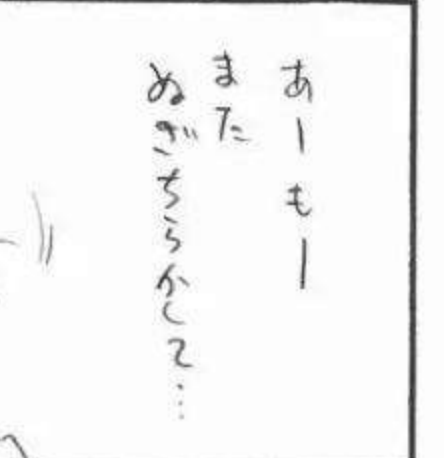 あーもー
また
ぬぎちらかして…